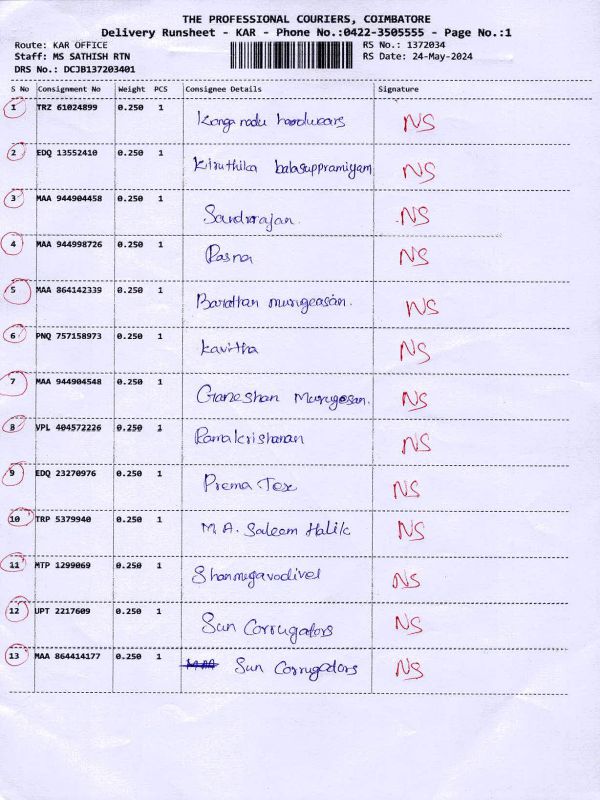 THE PROFESSIONAL COURIERS, COIMBATORE
Delivery Runsheet - KAR - Phone No.:0422-3505555 - Page No.:1
Route: KAR OFFICE RS No.: 1372034
Staff: MS SATHISH RTN RS Date: 24-May-2024
DRS No.: DCJB137203401
S No Consignment No Weight PCS Consignee Details Signature
1 TRZ 61024899 0.250 1 Konga nadu hardwears NS
2 EDQ 13552410 0.250 1 Kiruthika balasuppramiyam NS
3 MAA 944904458 0.250 1 Sandrrajan. NS
4 MAA 944998726 0.250 1 Rasna NS
5 MAA 864142339 0.250 1 Barathan murugeasan. NS
6 PNQ 757158973 0.250 1 Kavitha NS
7 MAA 944904548 0.250 1 Ganeshan Murugesan. NS
8 VPL 404572226 0.250 1 Ramakrishanan NS
9 EDQ 23270976 0.250 1 Prema Tex NS
10 TRP 5379940 0.250 1 M.A. Saleem Halik NS
11 MTP 1299069 0.250 1 Shanmugavadivel NS
12 UPT 2217609 0.250 1 Sun Corrugators NS
13 MAA 864414177 0.250 1 Sun Corrugators NS